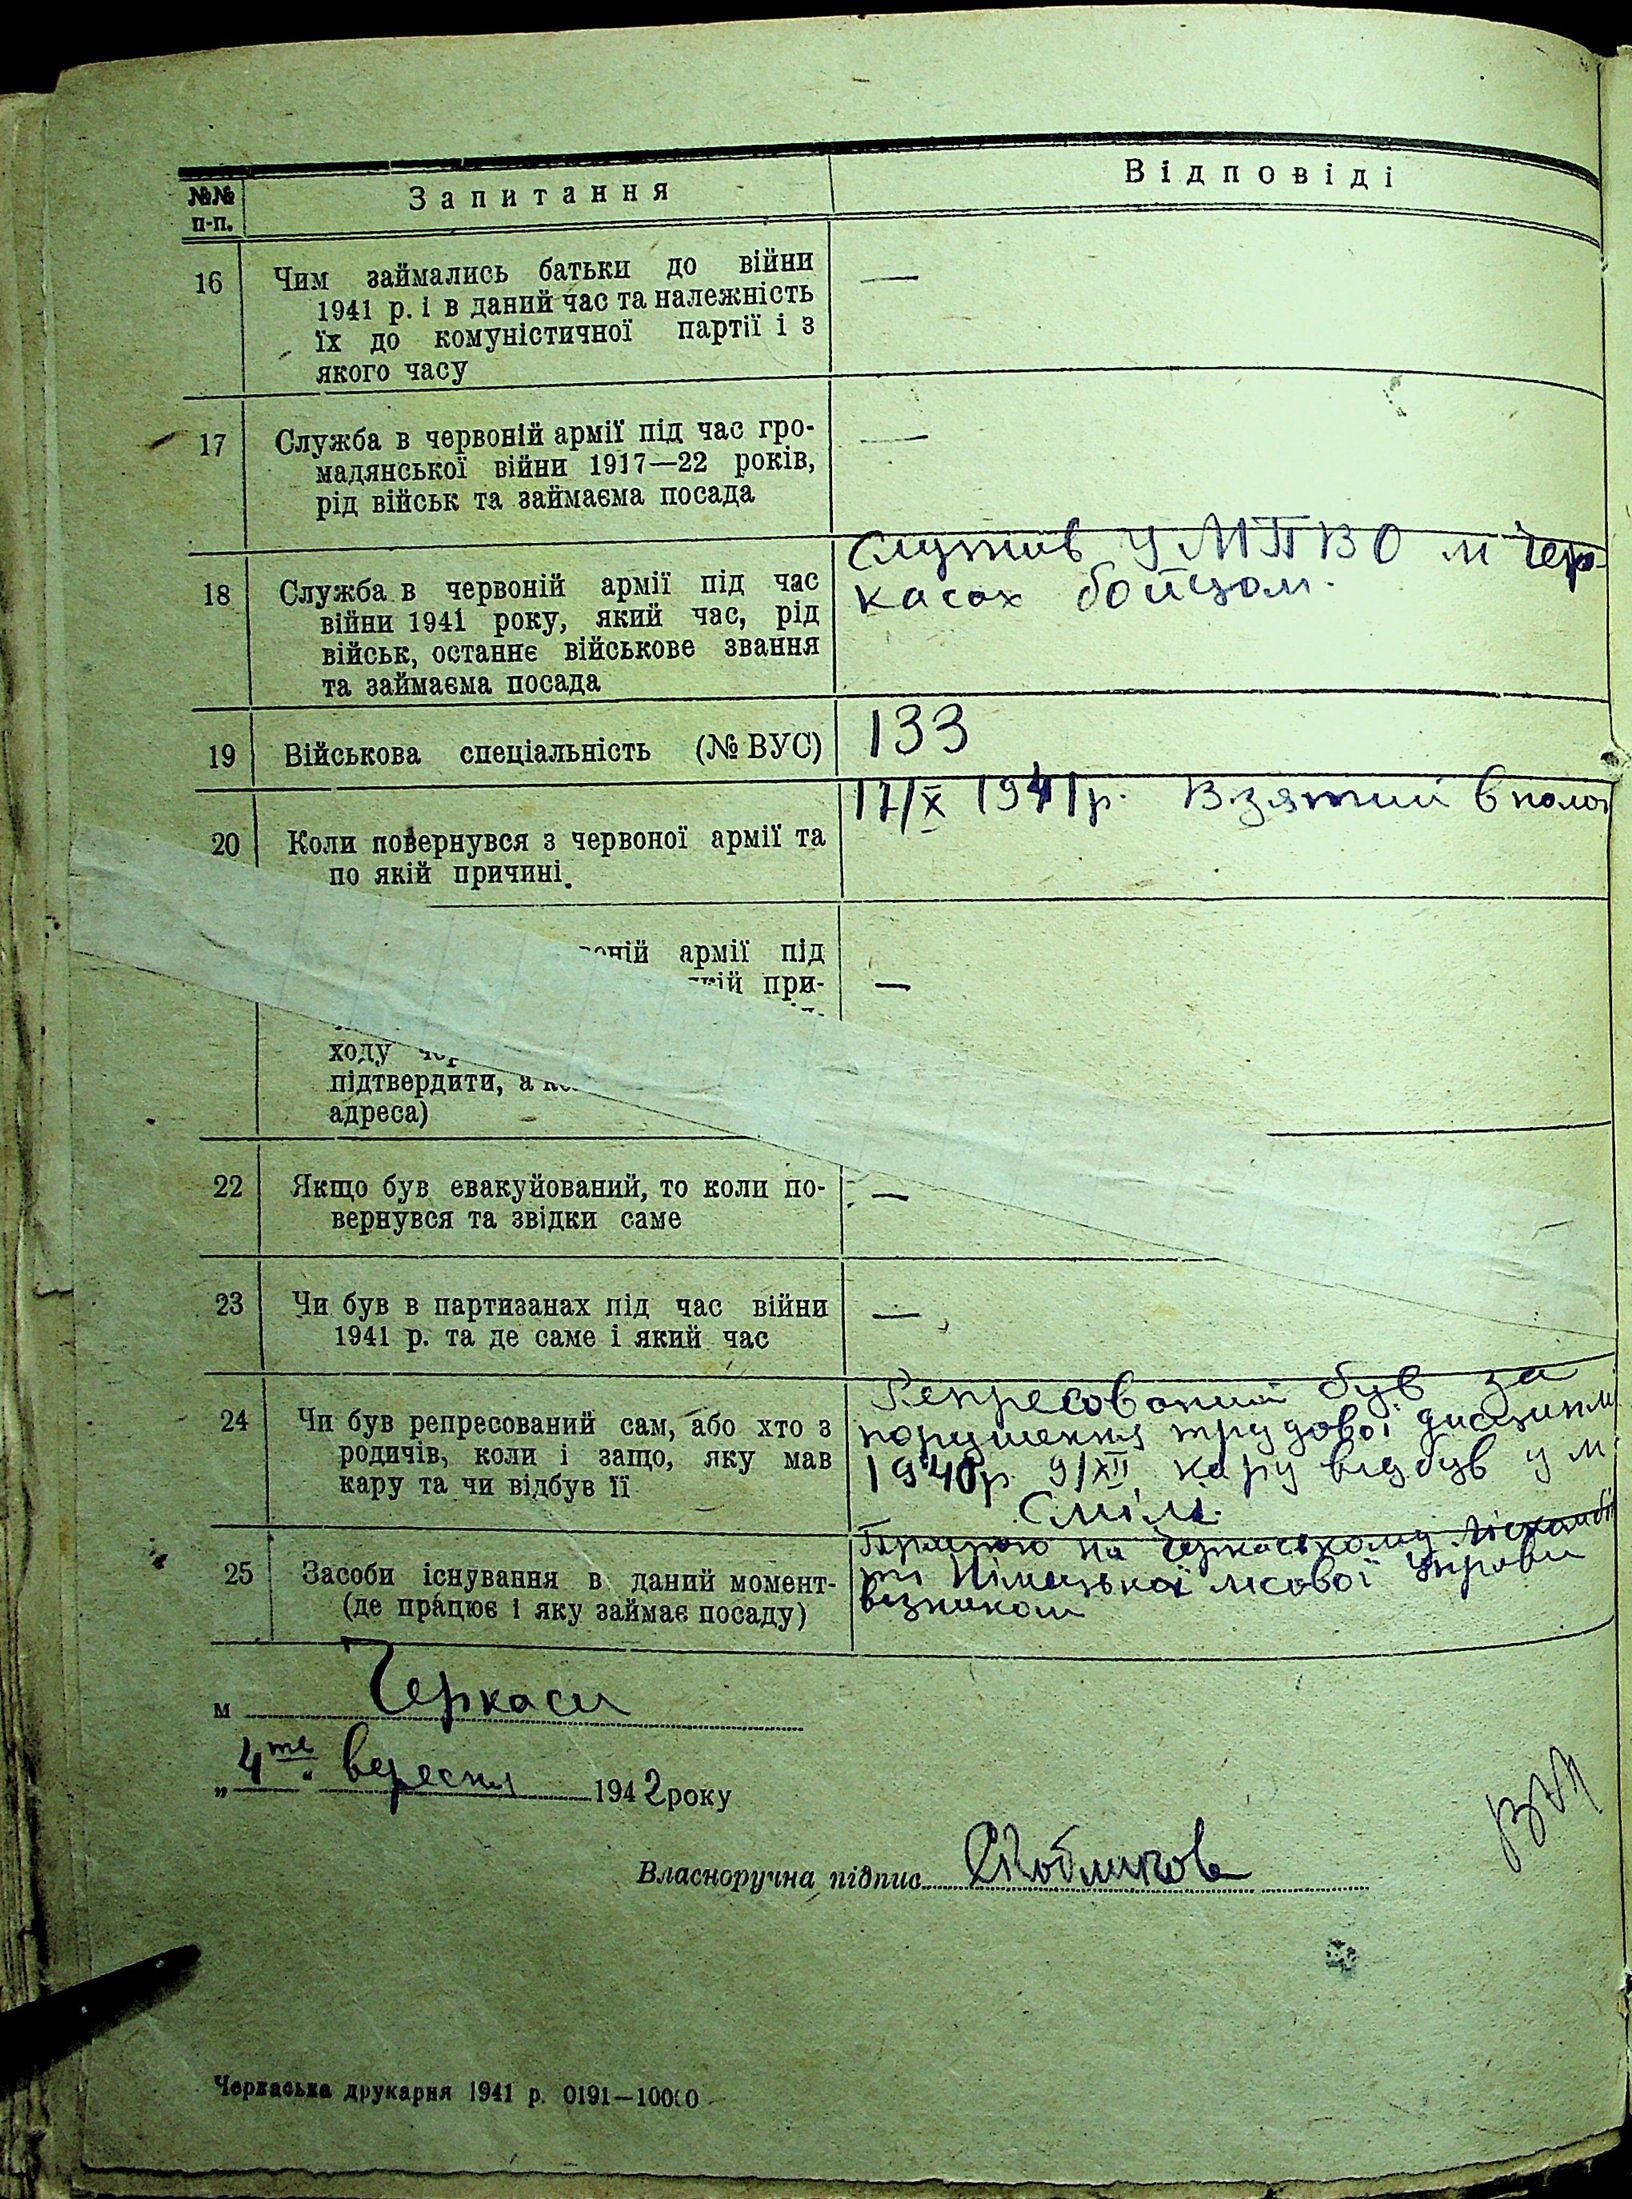 №№ п-п.
Запитання
Відповіді
16
Чим займались батьки до війни
1941 р. і в даний час та належність
їх до комуністичної партії і з
якого часу
—
17
Служба в червоній армії під час гро-
мадянської війни 1917—22 років,
рід військ та займаєма посада
—
18
Служба в червоній армії під час
війни 1941 року, який час, рід
військ, останнє військове звання
та займаєма посада
Служив у МПВО м Чер-
касах бойцом.
19
Військова спеціальність (№ ВУС)
133
20
Коли повернувся з червоної армії та
по якій причині.
17/X 1941 р. Взятий в полон
армії під
при-
—
ходу
підтвердити, а
адреса)
22
Якщо був евакуйований, то коли по-
вернувся та звідки саме
—
23
Чи був в партизанах під час війни
1941 р. та де саме і який час
—
24
Чи був репресований сам, або хто з
родичів, коли і защо, яку мав
кару та чи відбув її
Репресований був за
порушення трудової дисципли
1940р. 9/XII кару відбув у м
Смілі.
25
Засоби існування в даний момент-
(де працює і яку займає посаду)
Працюю на Черкаському
Німецької лісової Управи
візником
м Черкаси
„4те“ вересня 1942 року
Власноручна підпис
Черкаська друкарня 1941 р. 0191—10000